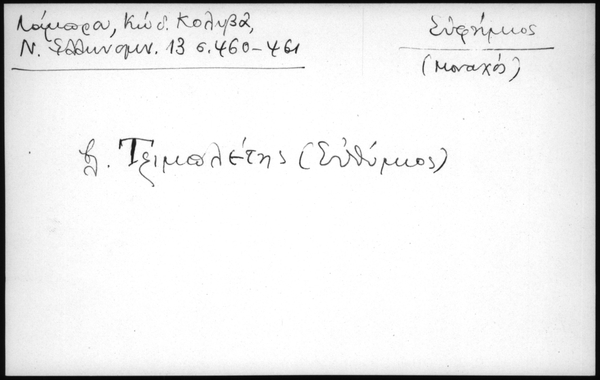 Λάμπρου, Κώδ. Κολυβᾶ,
Ν. Ἑλληνομν. 13 σ. 460-461
Εὐφήμιος
(Μοναχός)
βλ. Τζιμπλέτης (Εὐθύμιος)